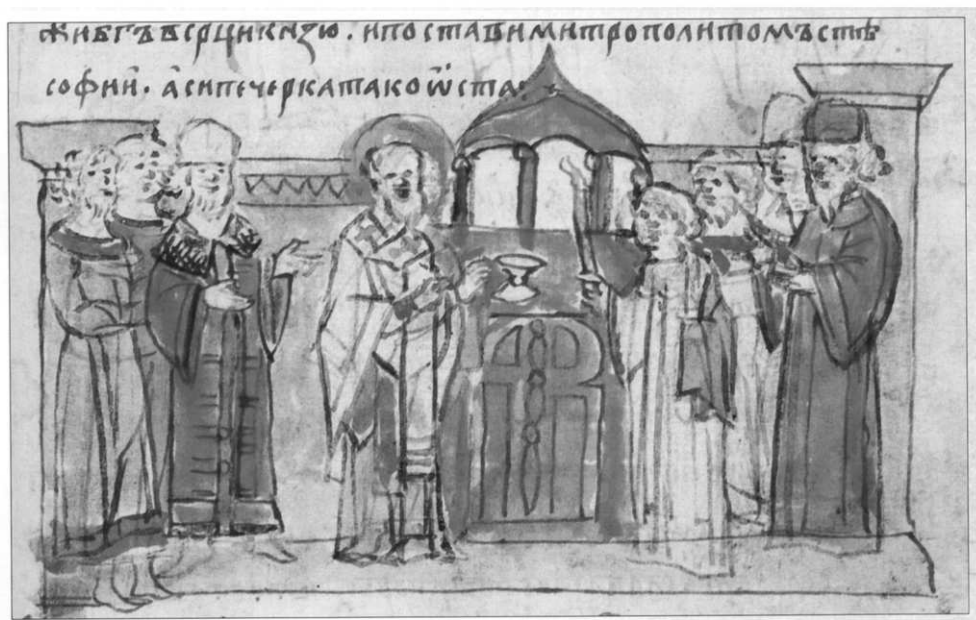 жибг҃ъвсрцикнѧзю. ипоставимитрополитомъст҃ѣ
софии. асипечеркатакоѡста: